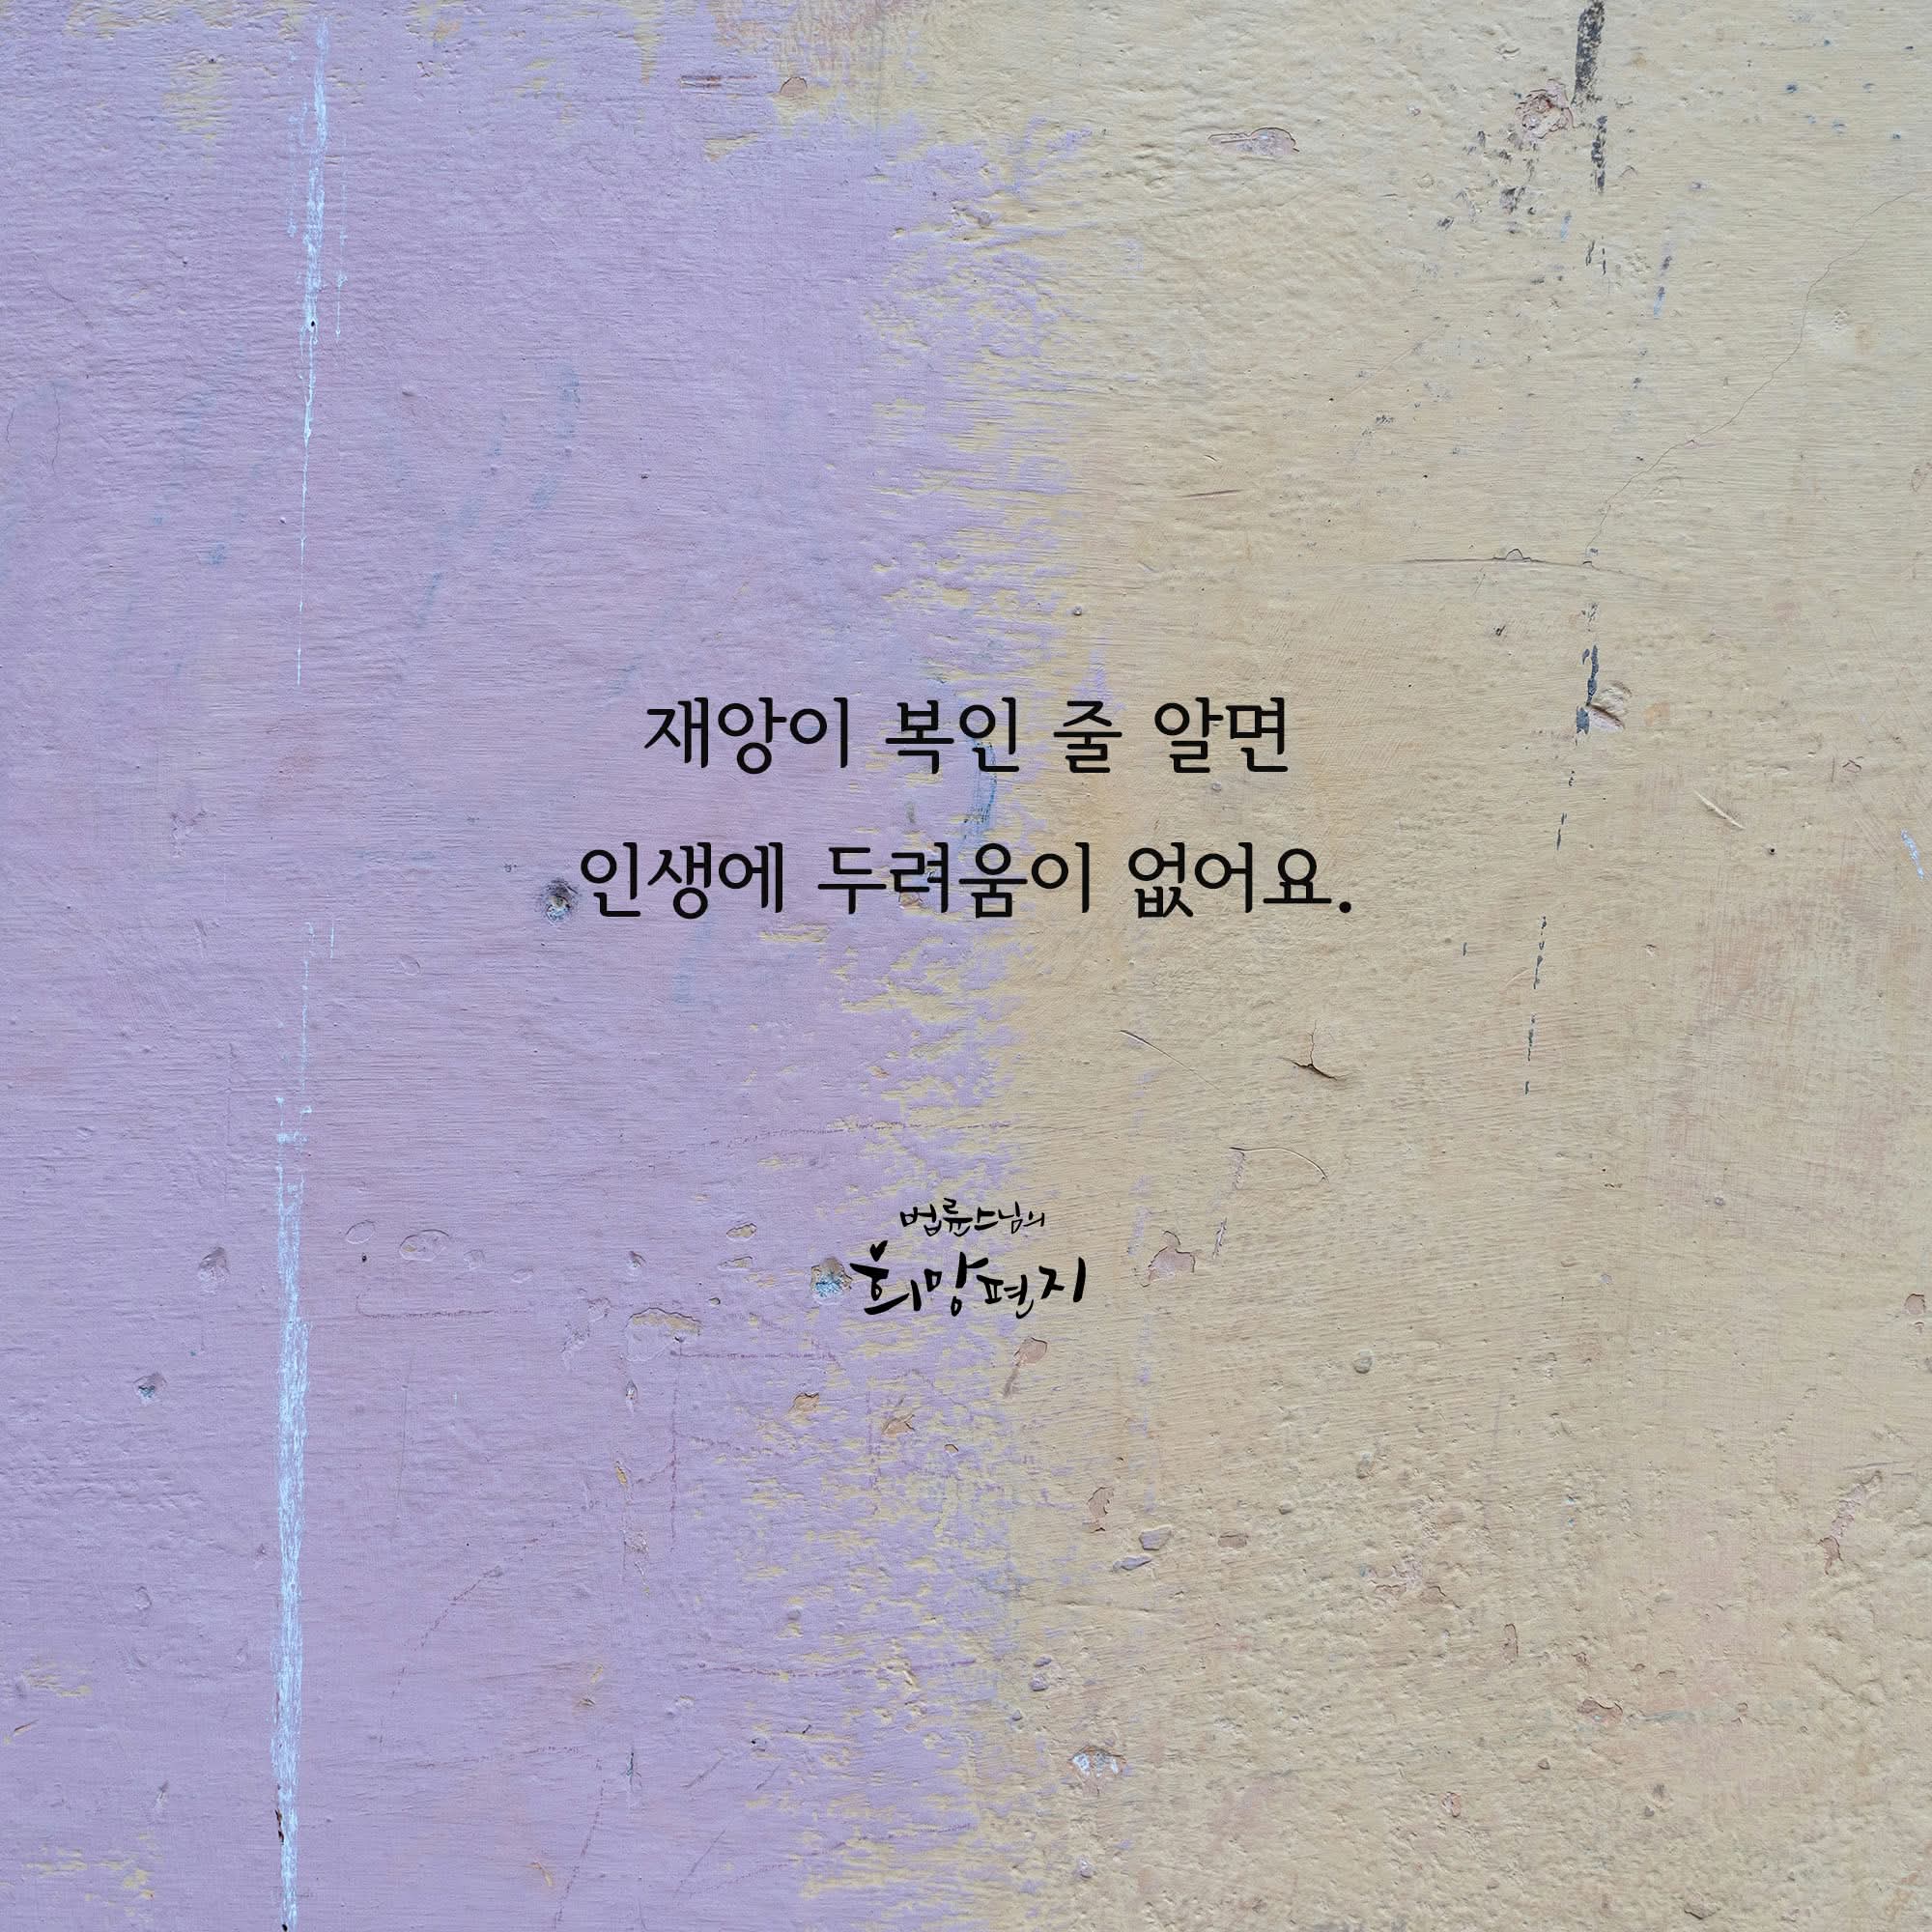 재앙이 복인 줄 알면
인생에 두려움이 없어요.
법륜스님의
희망편지